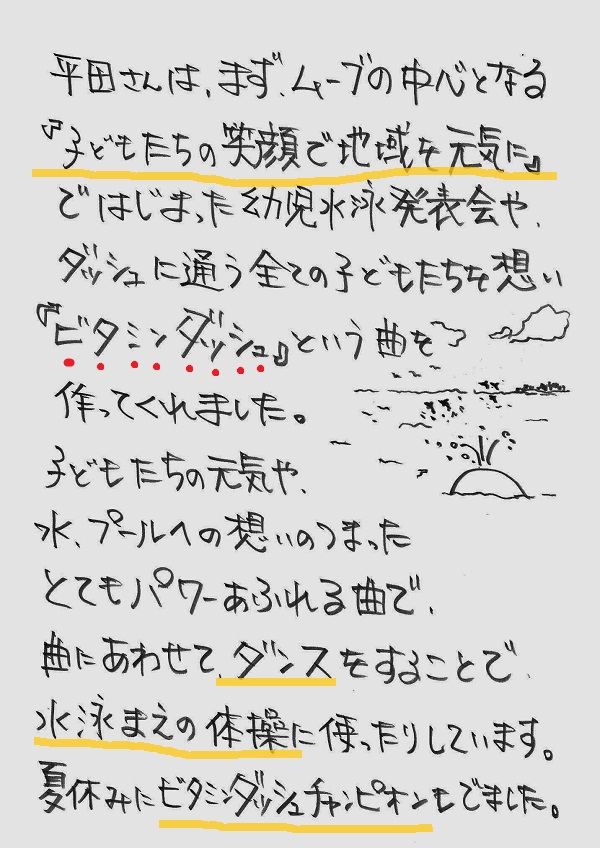 平田さんは、まず、ムーブの中心となる
『子どもたちの笑顔で地域を元気に』
ではじまった幼児水泳発表会や、
ダッシュに通う全ての子どもたちを想い
『ビタミンダッシュ』という曲を
作ってくれました。
子どもたちの元気や、
水、プールへの想いのつまった
とてもパワーあふれる曲で、
曲にあわせて、ダンスをすることで、
水泳まえの体操に使ったりしています。
夏休みにビタミンダッシュチャンピオンもでました。